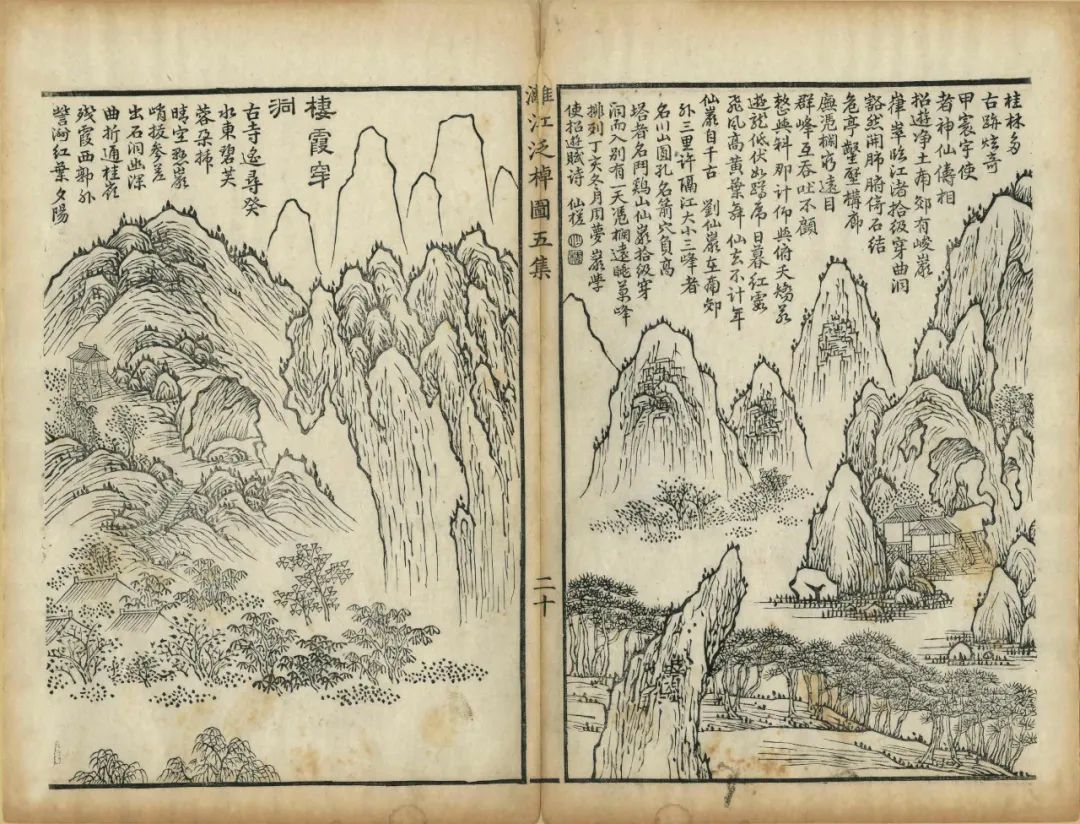 桂林多
古跡炫奇
甲寰宇使
者神仙儔相
招遊净土南郊有峻巖
嵂崒臨江渚拾級穿曲洞
豁然開肺腑倚石結
危亭鑿壁構廊
廡憑欄窮遠目
群峰互吞吐不顧
整與斜那計仰與俯天矯若
遊龍低伏如蹲虎日暮紅霞
飛風高黃葉舞仙去不計年
仙巖自千古 劉仙巖在南郊
外三里許隔江大小三峰者
名川山圓孔名箭穴自高
塔者名鬥鷄山仙巖拾級穿
洞而入別有一天憑欄遠眺萬峰
排列丁亥冬月周夢巖學
使招遊賦詩 仙槎
灕江泛棹圖五集
二十
棲霞穿
洞
古寺遠尋癸
水東碧芙
蓉朵插
晴空
峭拔參差
出石洞幽深
曲折通桂嶺
殘霞西郭外
訾洲紅葉夕陽